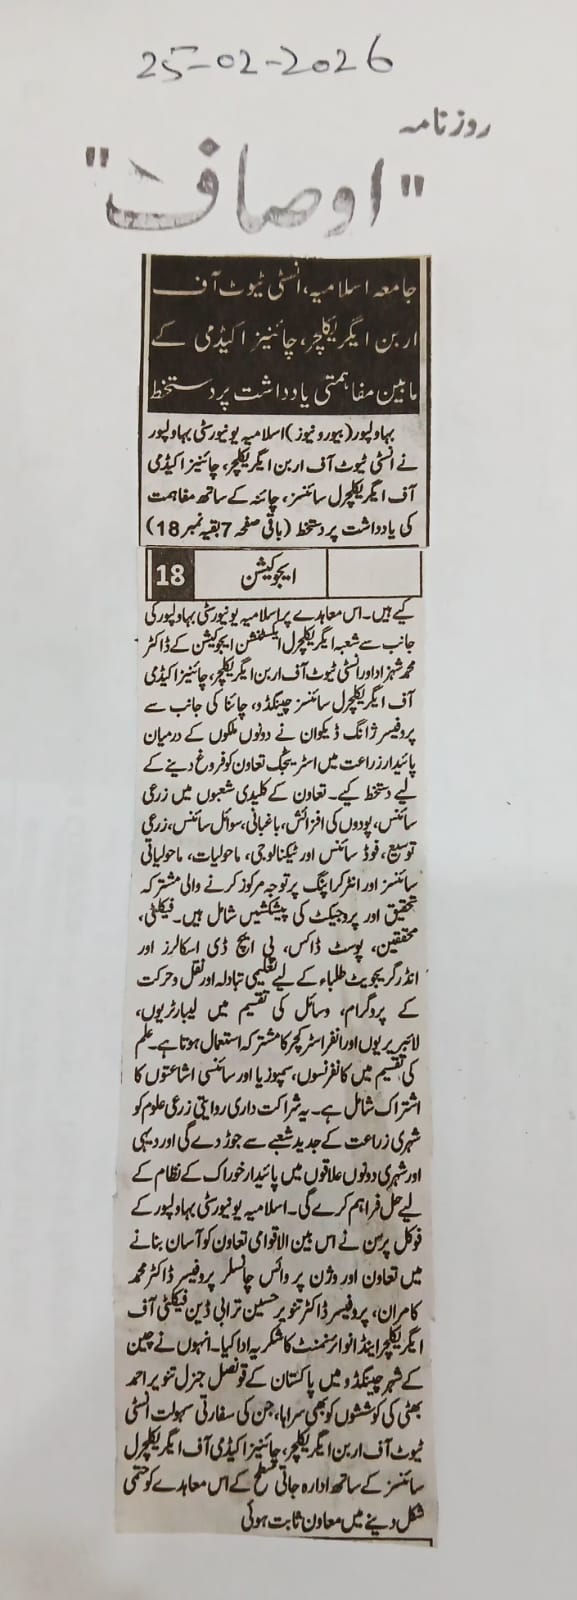 25-02-2026
روزنامہ
"اوصاف"
جامعہ اسلامیہ، انسٹی ٹیوٹ آف
اربن ایگریکلچر، چائنیز اکیڈمی کے
مابین مفاہمتی یادداشت پر دستخط
بہاولپور (بیورو نیوز) اسلامیہ یونیورسٹی بہاولپور
نے انسٹی ٹیوٹ آف اربن ایگریکلچر، چائنیز اکیڈمی
آف ایگریکلچرل سائنسز، چائنہ کے ساتھ مفاہمت
کی یادداشت پر دستخط (باقی صفحہ 7 بقیہ نمبر 18)
18 ایجوکیشن
کیے ہیں۔ اس معاہدے پر اسلامیہ یونیورسٹی بہاولپور کی
جانب سے شعبہ ایگریکلچرل ایکسٹنشن ایجوکیشن کے ڈاکٹر
محمد شہزاد اور انسٹی ٹیوٹ آف اربن ایگریکلچر، چائنیز اکیڈمی
آف ایگریکلچرل سائنسز چینگڈو، چائنا کی جانب سے
پروفیسر ژانگ ڈیکوان نے دونوں ملکوں کے درمیان
پائیدار زراعت میں اسٹریٹجک تعاون کو فروغ دینے کے
لیے دستخط کیے۔ تعاون کے کلیدی شعبوں میں زرعی
سائنس، پودوں کی افزائش، باغبانی، سوائل سائنس، زرعی
توسیع، فوڈ سائنس اور ٹیکنالوجی، ماحولیات، ماحولیاتی
سائنسز اور انٹرکراپنگ پر توجہ مرکوز کرنے والی مشترکہ
تحقیق اور پروجیکٹ کی پیشکشیں شامل ہیں۔ فیکلٹی،
محققین، پوسٹ ڈاکس، پی ایچ ڈی اسکالرز اور
انڈرگریجویٹ طلباء کے لیے تعلیمی تبادلہ اور نقل و حرکت
کے پروگرام، وسائل کی تقسیم میں لیبارٹریوں،
لائبریریوں اور انفراسٹرکچر کا مشترکہ استعمال ہوتا ہے۔ علم
کی تقسیم میں کانفرنسوں، سمپوزیا اور سائنسی اشاعتوں کا
اشتراک شامل ہے۔ یہ شراکت داری روایتی زرعی علوم کو
شہری زراعت کے جدید شعبے سے جوڑ دے گی اور دیہی
اور شہری دونوں علاقوں میں پائیدار خوراک کے نظام کے
لیے حل فراہم کرے گی۔ اسلامیہ یونیورسٹی بہاولپور کے
فوکل پرسن نے اس بین الاقوامی تعاون کو آسان بنانے
میں تعاون اور وژن پر وائس چانسلر پروفیسر ڈاکٹر محمد
کامران، پروفیسر ڈاکٹر تنویر حسین ترابی ڈین فیکلٹی آف
ایگریکلچر اینڈ انوائرنمنٹ کا شکریہ ادا کیا۔ انہوں نے چین
کے شہر چینگڈو میں پاکستان کے قونصل جنرل تنویر احمد
بھٹی کی کوششوں کو بھی سراہا، جن کی سفارتی سہولت انسٹی
ٹیوٹ آف اربن ایگریکلچر، چائنیز اکیڈمی آف ایگریکلچرل
سائنسز کے ساتھ ادارہ جاتی سطح کے اس معاہدے کو حتمی
شکل دینے میں معاون ثابت ہوئی